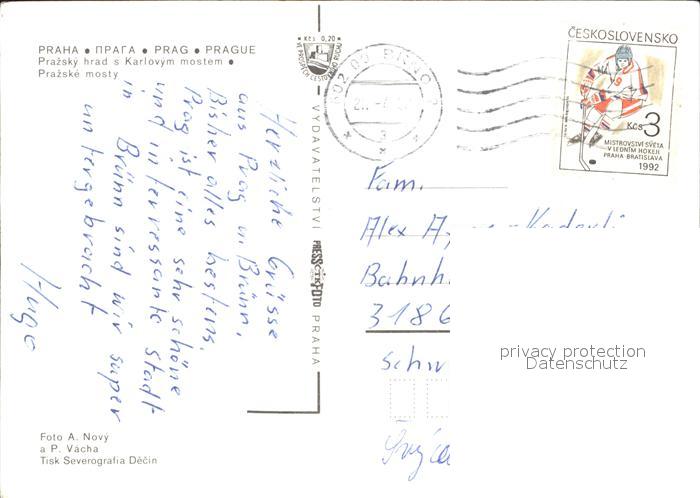 PRAHA • ПРАГА • PRAG • PRAGUE
Pražský hrad s Karlovým mostem •
Pražské mosty
Herzliche Grüsse
aus Prag u. Brünn.
Bisher alles bestens.
Prag ist eine sehr schöne
und interressante Stadt
in Brünn sind wir super
untergebracht
Hugo
Foto A. Nový
a P. Vácha
Tisk Severografia Děčín
Kčs 0,20
VYDAVATELSTVÍ PRESSFOTO PRAHA
602 00 BRNO 2
3
ČESKOSLOVENSKO
9
Kčs 3
MISTROVSTVÍ SVĚTA
V LEDNÍM HOKEJI
PRAHA-BRATISLAVA
1992
Fam.
Alex
Bahnh
3186
Schw
privacy protection
Datenschutz